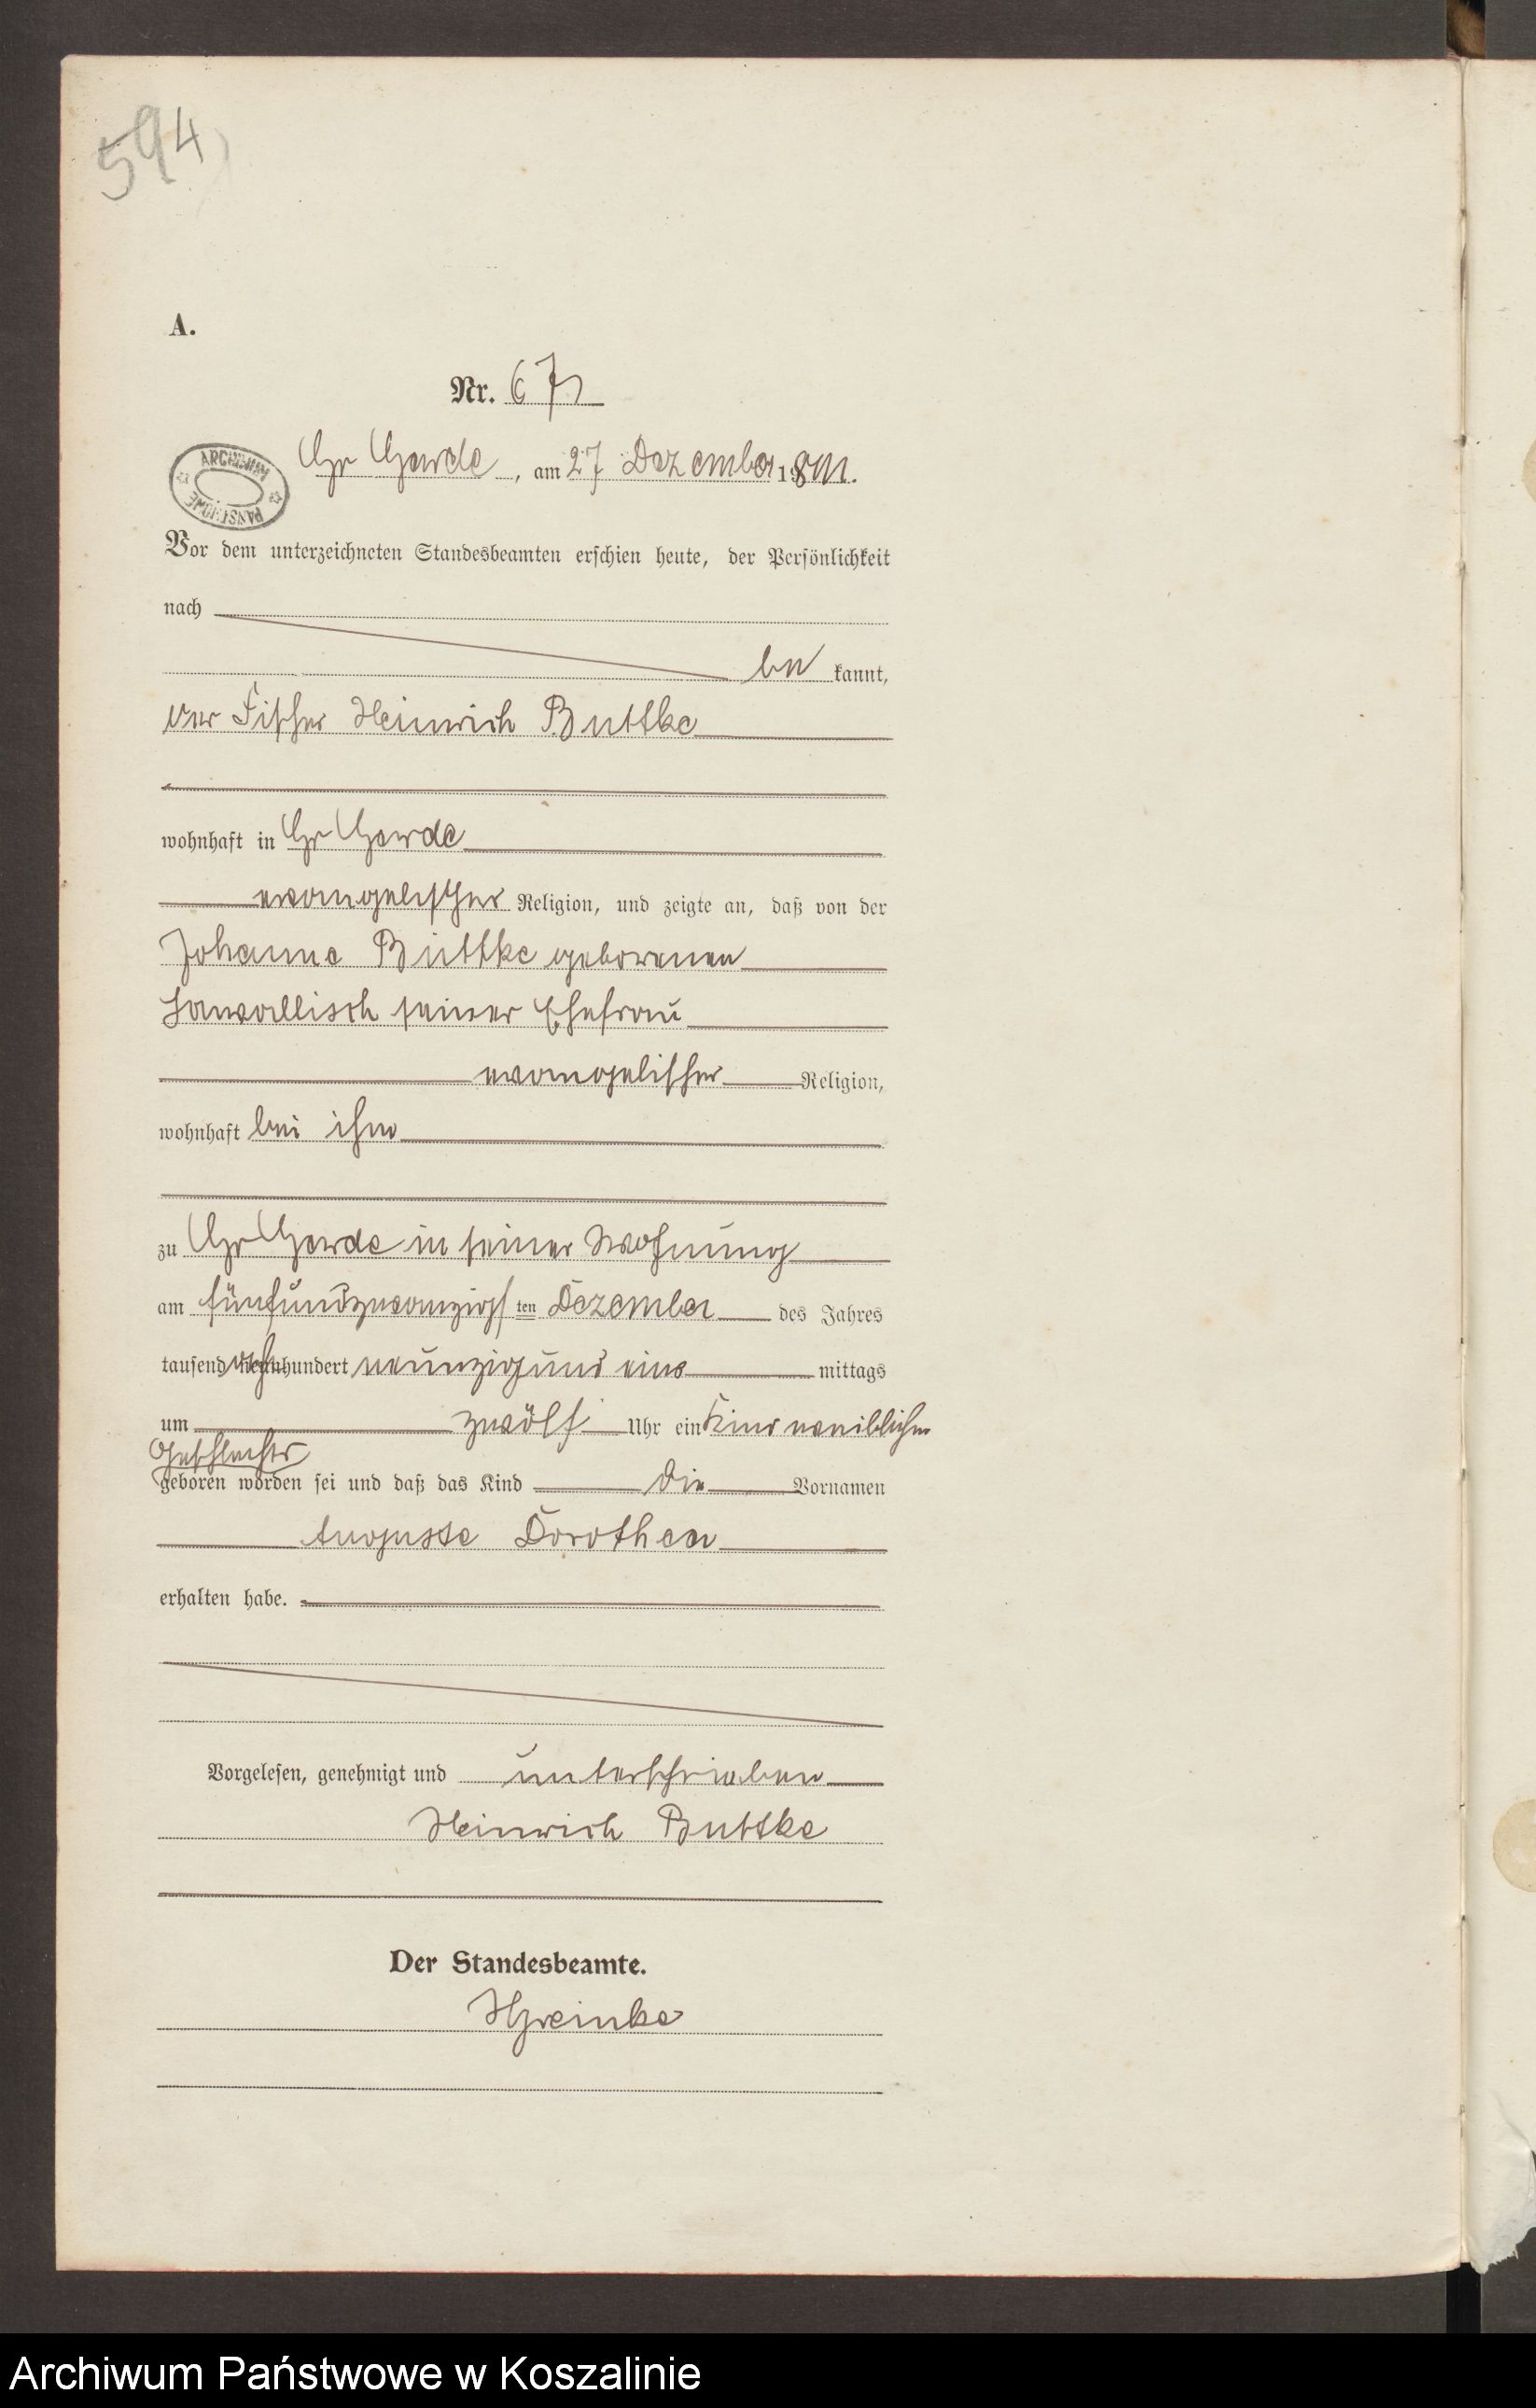 594
A.
Nr. 67
ARCHIWUM PAŃSTWOWE
Gr Garde, am 27 Dezember 1891.
Vor dem unterzeichneten Standesbeamten erschien heute, der Persönlichkeit
nach
be kannt,
der Fischer Heinrich Buttke
wohnhaft in Gr Garde
evangelischer Religion, und zeigte an, daß von der
Johanne Buttke geborenen
Lawallisch seiner Ehefrau
evangelischer Religion,
wohnhaft bei ihm
zu Gr Garde in seiner Wohnung
am fünfundzwanzigsten Dezember des Jahres
tausend achthundert neunzig und eins mittags
um zwölf Uhr ein Kind weiblichen
Geschlechts
geboren worden sei und daß das Kind die Vornamen
Auguste Dorothea
erhalten habe.
Vorgelesen, genehmigt und unterschrieben
Heinrich Buttke
Der Standesbeamte.
Archiwum Państwowe w Koszalinie